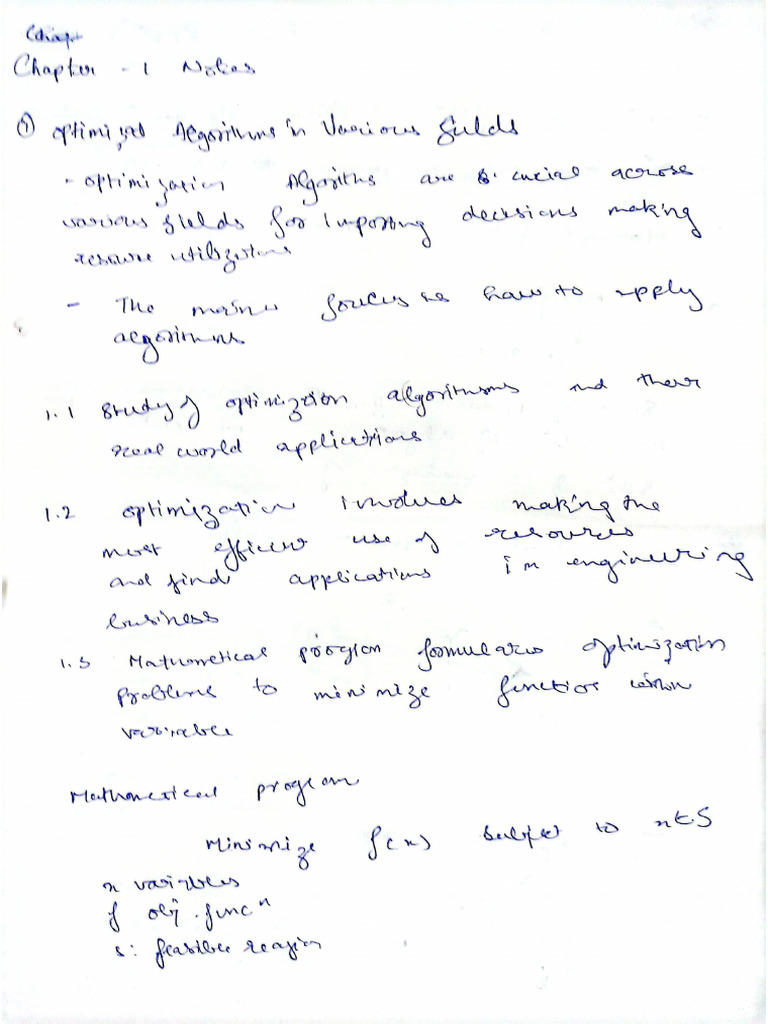 Chapter - 1 Notes
① optimized Algorithms in Various fields
- optimization Algoriths are crucial across
various fields for Improving decisions making
resource utilizations
- The main focus is how to apply
algorithms
1.1 Study of optimization algorithms and their
real world applications
1.2 optimization involves making the
most efficent use of resources
and find applications in engineering
business
1.3 Mathematical program formulates optimization
problems to minimize function within
variables
Mathematical program
Minimize f(x) Subject to x∈S
x variables
f obj. funcⁿ
s: feasible reagion